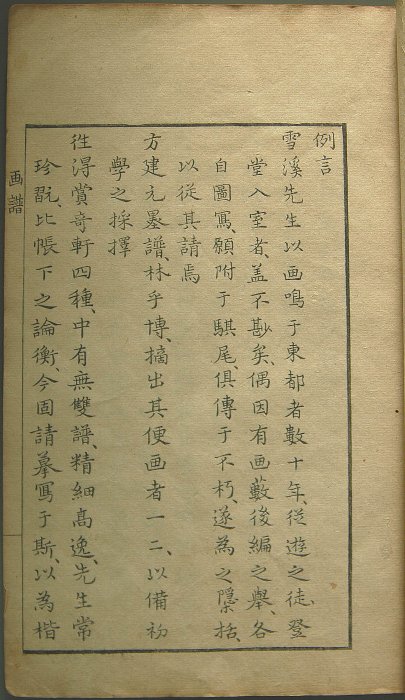 例言
雪溪先生以画鳴于東都者數十年、從遊之徒、登
堂入室者、盖不尠矣、偶因有画藪後編之舉、各
自圖寫、願附于騏尾、俱傳于不朽、遂為之隱括、
以從其請焉
方建元墨譜、林乎博、摘出其便画者一二、以備初
學之採擇
徃淂賞奇軒四種、中有無雙譜、精細高逸、先生常
珍翫、比帳下之論衡、今固請摹寫于斯、以為楷
画譜